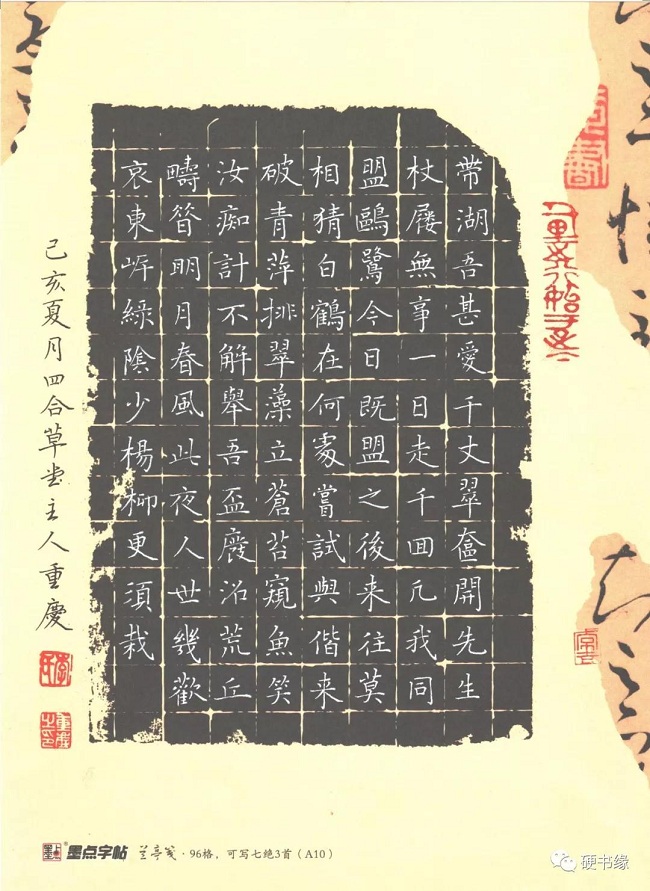 帶湖吾甚愛千丈翠奩開先生
杖屨無事一日走千囬凡我同
盟鷗鷺今日既盟之後来往莫
相猜白鶴在何處嘗試與偕来
破青萍排翠藻立蒼苔窺魚笑
汝痴計不解舉吾盃廢沼荒丘
疇昔明月春風此夜人世幾歡
哀東岸綠陰少楊柳更須栽
己亥夏月四合草堂主人重慶
墨点字帖 兰亭笺·96格，可写七绝3首（A10）
硬书缘